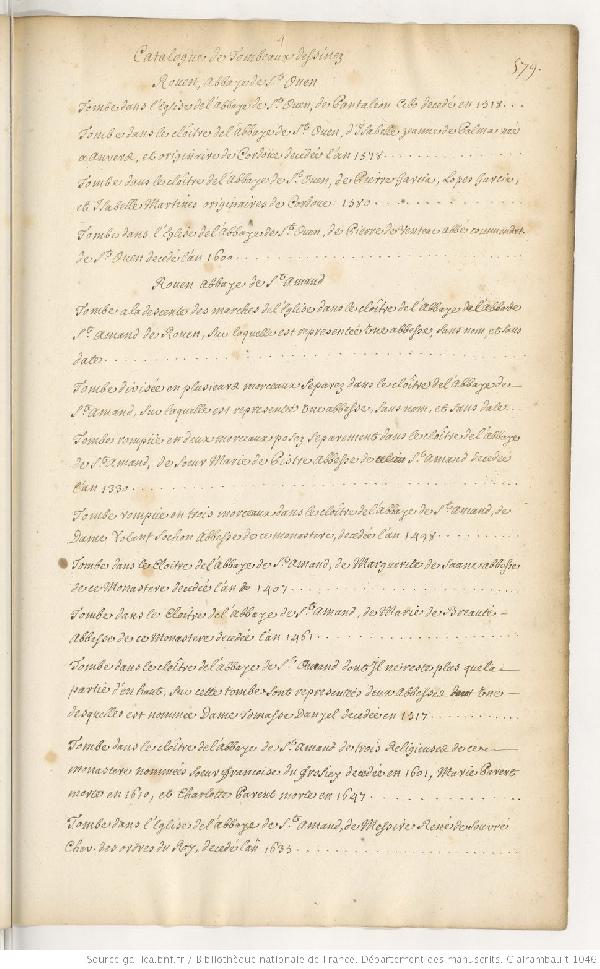 579.
Catalogue de Tombeaux dessinez
Rouen, Abbaye de St. Ouen
Tombe dans l'Eglise de l'abbaye de St. Ouen, de Pantaleon decedé en 1518...
Tombe dans le cloître de l'Abbaye de St. Ouen, d'Isabelle née
a Anvers, et originaire de Cordoüe decedée l'an 1578
Tombe dans le cloître de l'Abbaye de St. Ouen, de Pierre Garcia, Lopes Garcia,
et Isabelle Martines originaires de Cordoue 1580
Tombe dans l'Eglise de l'abbaye de St. Ouen, de Pierre de abbé commendat.
de St. Ouen decedé l'an 1600
Rouen Abbaye de St. Amand
Tombe a la descente des marches de l'Eglise dans le cloître de l'Abbaye de l'Abbaye
St. Amand de Rouen, sur laquelle est representée une abbesse, sans nom, et sans
date
Tombe divisée en plusieurs morceaux separez dans le cloître de l'Abbaye de
St. Amand, sur laquelle est representée une abbesse, sans nom, et sans date
Tombe rompüe en deux morceaux posez separement dans le cloître de l'abbaye
de St. Amand, de soeur Marie de Abbesse de St. Amand decedée
l'an 1330
Tombe rompüe en trois morceaux dans le cloître de l'abbaye de St. Amand, de
Dame Abbesse de ce monastere, decedée l'an
Tombe dans le cloître de l'Abbaye de St. Amand, de Marguerite de Saane abbesse
de ce Monastere decedée l'an 1407
Tombe dans le Cloître de l'abbaye de St. Amand, de Marie de Breauté
Abbesse de ce Monastere decedée l'an 1461
Tombe dans le cloître de l'Abbaye de St. Amand dont Il ne reste plus que la
partie d'en haut, sur cette tombe sont representées deux Abbesses l'une
desquelles est nommée Dame Tomasse Danyel decedée en 1517
Tombe dans le cloître de l'Abbaye de St. Amand de trois Religieuses de ce
monastere nommées soeur françoise du decedée en 1601, Marie Parent
morte en 1610, et Charlotte Parent morte en 1647
Tombe dans l'Eglise de l'abbaye de St. Amand, de Messire René de Souvré
Chev. des ordres du Roy, decedé l'an 1635
Source gallica.bnf.fr / Bibliothèque nationale de France. Département des manuscrits. Clairambault 1046